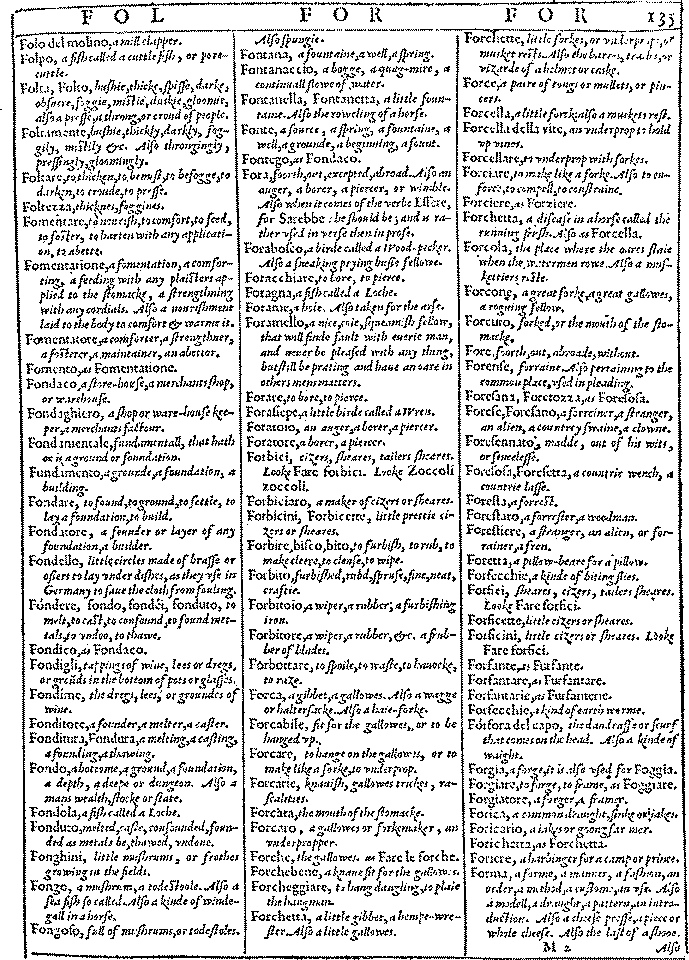 FOL FOR FOR 135
Folo del molino, a mill clapper.
Folpo, a fish called a cuttle fish, or pore-
cuttle.
Folta, Folto, bushie, thicke, spisse, darke,
obscure, foggie, mistie, duskie, gloomie,
also a presse, a throng, or croud of people.
Foltamente, bushie, thickly, darkly, fog-
gily, mistily &c. Also throngingly,
pressingly, gloomingly.
Foltare, to thicken, to bemist, to befogge, to
darken, to croude, to presse.
Foltezza, thicknes, fogginES.
Fomentare, to nourish, to comfort, to feed,
to foster, to harten with any applicati-
on, to abette.
Fomentatione, a fomentation, a comfor-
ting, a feeding with any plaisters ap-
plied to the stomacke, a strengthning
with any cordials. Also a nourishment
laid to the body to comfort & warme it.
Fomentatore, a comforter, a strengthner,
a fosterer, a maintainer, an abettor.
Fomento, as Fomentatione.
Fondaco, a store-house, a merchants shop,
or warehouse.
Fondaghiero, a shop or ware-house kee-
per, a merchants factour.
Fondamentale, fundamentall, that hath
or is a ground or foundation.
Fundamento, a grounde, a foundation, a
building.
Fondare, to found, to ground, to settle, to
lay a foundation, to build.
Fondatore, a founder or layer of any
foundation, a builder.
Fondello, little circles made of brasse or
osiers to lay vnder dishes, as they vse in
Germany to saue the cloth from fouling.
Fóndere, fondo, fondéi, fonduto, to
melt, to cast, to confound, to found met-
tals, to vndoo, to thawe.
Fondico, as Fondaco.
Fondigli, tappings of wine, lees or dregs,
or grounds in the bottom of pots or glasses.
Fondime, the dregs, lees, or groundes of
wine.
Fonditore, a founder, a melter, a caster.
Fonditura, Fondura, a melting, a casting,
a founding, a thawing.
Fondo, a bottome, a ground, a foundation,
a depth, a deepe or dungeon. Also a
mans wealth, stocke or state.
Fondola, a fish called a Loche.
Fonduto, melted, caste, confounded, foun-
ded as metals be, thawed, vndone.
Fonghini, little mushrums, or frothes
growing in the fields.
Fongo, a mushrum, a todestoole. Also a
sea fish so called. Also a kinde of winde-
gall in a horse.
Fongoso, full of mushrums, or todestoles.
Also spungie.
Fontana, a fountaine, a well, a spring.
Fontanaccio, a bogge, a quag-mire, a
continuall flowe of water.
Fontanella, Fontanetta, a little foun-
taine. Also the roweling of a horse.
Fonte, a source, a spring, a fountaine, a
well, a grounde, a beginning, a fount.
Fontego, as Fondaco.
Fora, foorth, out, excepted, abroad. Also an
auger, a borer, a piercer, or wimble.
Also when it comes of the verbe Essere,
for Sarebbe: he should be; and is ra-
ther vsed in verse then in prose.
Forabosco, a birde called a Wood-pecker.
Also a sneaking prying busie fellowe.
Foracchiare, to bore, to pierce.
Foragna, a fish called a Loche.
Forame, a hole. Also taken for the arse.
Foramello, a nice, coie, squeamish fellow,
that will finde fault with euerie man,
and neuer be pleased with any thing,
but still be prating and haue an oare in
others mens matters.
Forare, to bore, to pierce.
Forasiepe, a little birde called a Wren.
Foratoio, an auger, a borer, a piercer.
Foratore, a borer, a piercer.
Forbici, cizers, sheares, tailers sheares.
Looke Fare forbici. Looke Zoccoli
zoccoli.
Forbiciaro, a maker of cizers or sheares.
Forbicini, Forbicette, little prettie ci-
zers or sheares.
Forbire, bisco, bito, to furbish, to rub, to
make cleene, to clense, to wipe.
Forbito, furbished, rubd, spruse, fine, neat,
craftie.
Forbitoio, a wiper, a rubber, a furbishing
iron.
Forbitore, a wiper, a rubber, &c. a furb-
ber of blades.
Forbottare, to spoile, to waste, to hauocke,
to raze.
Forca, a gibbet, a gallowes. Also a wagge
or haltersacke. Also a haie-forke.
Forcabile, fit for the gallowes, or to be
hanged vp.
Forcare, to hange on the gallowes, or to
make like a forke, to vnderprop.
Forcarie, knauish, gallowes trickes, ra-
scalities.
Forcata, the mouth of the stomacke.
Forcaro, a gallowes or forkemaker, an
vnderpropper.
Forche, the gallowes. as Fare le forche.
Forchebene, a knaue fit for the gallowes.
Forcheggiare, to hang daugling, to plaie
the hangman.
Forchetta, a little gibbet, a hempe-wre-
ster. Also a little gallowes.
Forchette, little forkes, or vnderprops, or
musket rests. Also the barres, or
vizarde of a helmet or caske.
Force, a paire of tongs or mullets, or pin-
cers.
Forcella, a little fork, also a muskets rest.
Forcella della vite, an vnderprop to hold
up vines.
Forcellare, to vnderprop with forkes.
Forciare, to make like a forke. Also to en-
force, to compell, to constraine.
Forciere, as Forziere.
Forchetta, a disease in a horse called the
running frush. Also as Forcella.
Forcola, the place where the oares staie
when the watermen rowe. Also a mus-
kettiers reste.
Forcone, a great forke, a great gallowes,
a roguing fellow.
Forcuto, forked, or the mouth of the sto-
macke.
Fore, forth, out, abroade, without.
Forense, forraine. Also pertaining to the
common place, vsed in pleading.
Foresana, Foretozza, as Forelosa.
Forese, Foresano, a forreiner, a stranger,
an alien, a country swaine, a clowne.
Forsennato, madde, out of his wits,
or sencelesse.
Forelosa, Foresetta, a countrie wench, a
countrie lasse.
Foresta, a forrest.
Forestaro, a forrester, a woodman.
Forestiere, a stranger, an alien, or for-
rainer, a fren.
Foretta, a pillow-beare for a pillow.
Forfecchie, a kinde of biting flies.
Forfici, sheares, cizers, tailers sheares.
Looke Fare forfici.
Forficette, little cizers or sheares.
Forficini, little cizers or sheares. Looke
Fare forfici.
Forfante, as Furfante.
Forfantare, as Furfantare.
Forfantarie, as Furfanterie.
Forfecchie, a kind of earth worme.
Fórfora del capo, the dandraffe or scurf
that comes on the head. Also a kinde of
waight.
Forgia, a forge, it is also vsed for Foggia.
Forgiare, to forge, to frame, as Foggiare.
Forgiatore, a forger, a framer.
Forica, a common draught, sinke or jakes.
Foricario, a iakes or goong far mer.
Forichetta, as Forchetta.
Foriere, a harbinger for a camp or prince.
Forma, a forme, a manner, a fashion, an
order, a method, a custome, an vse. Also
a modell, a draught, a pattern, an intro-
duction. Also a cheese presse, a piece or
whole cheese. Also the last of a shooe.
M 2 Also